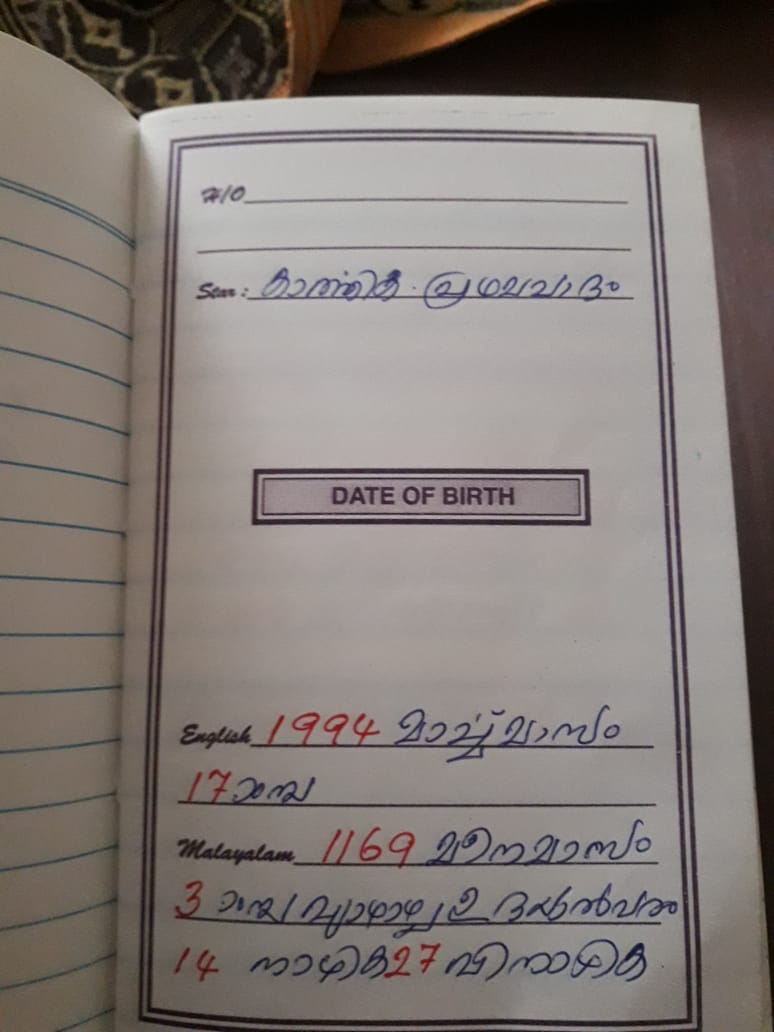 H/O
Star: കാർത്തിക പ്രഥമപാദം
DATE OF BIRTH
English 1994 മാർച്ച് മാസം
17 ാംനു
Malayalam 1169 മീനമാസം
3 ാംനു വ്യാഴാഴ്ച ഉദയാൽപരം
14 നാഴിക 27 വിനാഴിക